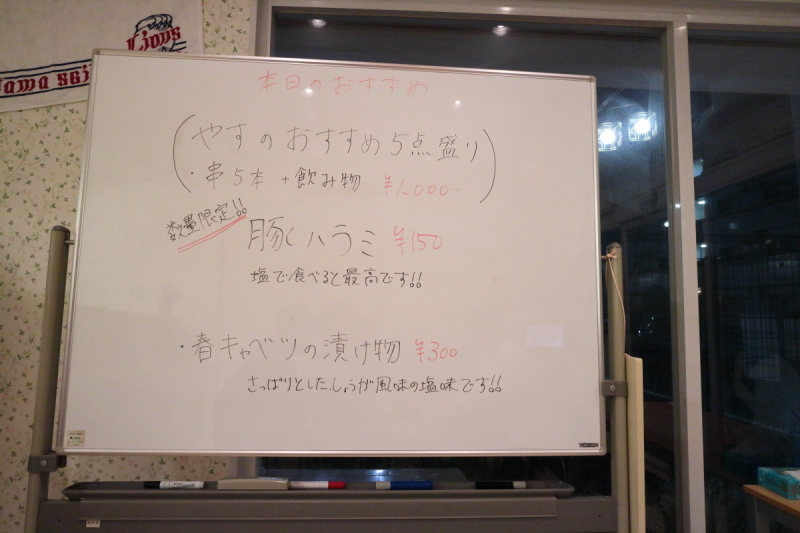 Lions
本日のおすすめ
やすのおすすめ5点盛り
・串5本+飲み物 ¥1,000-
数量限定!!
豚ハラミ ¥150
塩で食べると最高です!!
・春キャベツの漬け物 ¥300
さっぱりとした、しょうが風味の塩味です!!